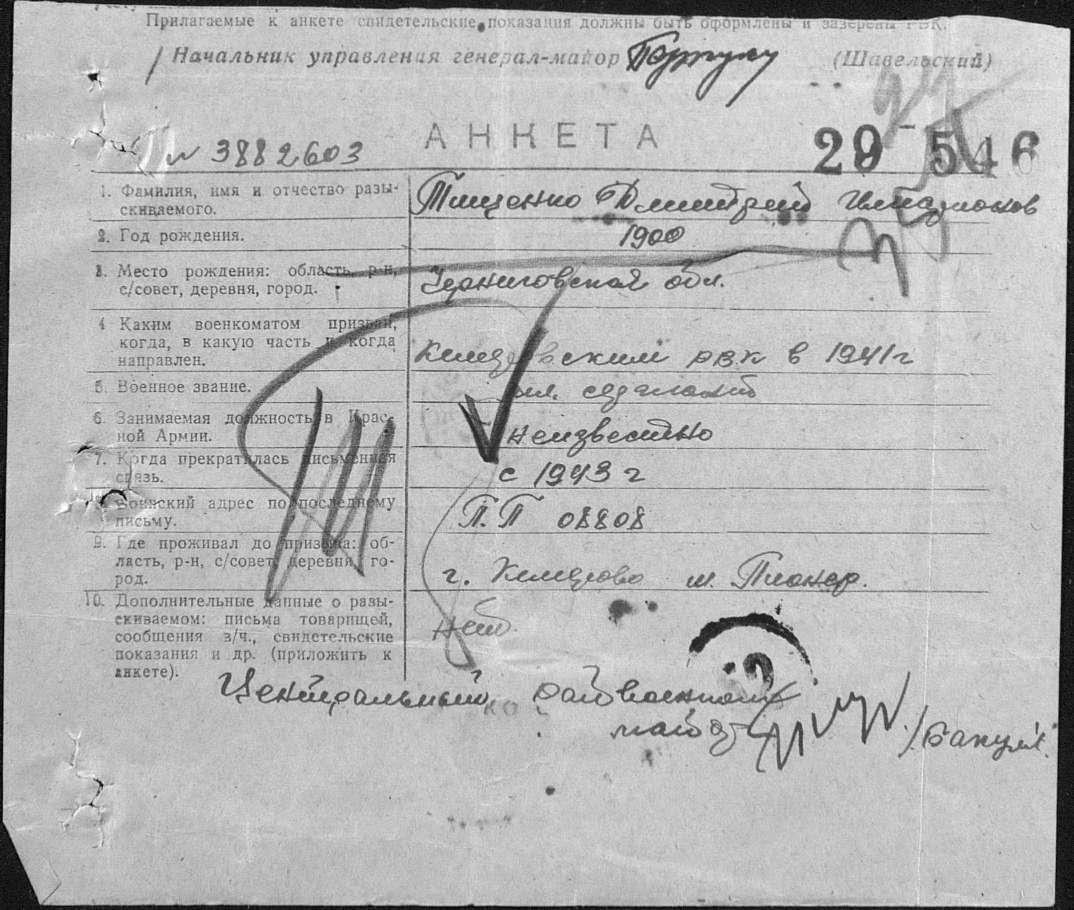 Прилагаемые к анкете свидетельские показания должны быть оформлены и заверены РВК.
Начальник управления генерал-майор (Шавельский)
АНКЕТА
29 546
№ 3882603
1. Фамилия, имя и отчество разы-
скиваемого.
Тищенко Дмитрий
2. Год рождения.
1900
3. Место рождения: область, р-н,
с/совет, деревня, город.
Черниговская обл.
4 Каким военкоматом призван,
когда, в какую часть и когда
направлен.
Кемеровским рвк в 1941 г
5. Военное звание.
мл. сержант
6. Занимаемая должность в Крас-
ной Армии.
неизвестно
7. Когда прекратилась письменная
связь.
с 1943 г
8. Воинский адрес по последнему
письму.
П.П 08808
9. Где проживал до призыва: об-
ласть, р-н, с/совет, деревня, го-
род.
г. Кемерово м. Пионер.
10. Дополнительные данные о разы-
скиваемом: письма товарищей,
сообщения в/ч., свидетельские
показания и др. (приложить к
анкете).
нет.
Центральный райвоенком
майор